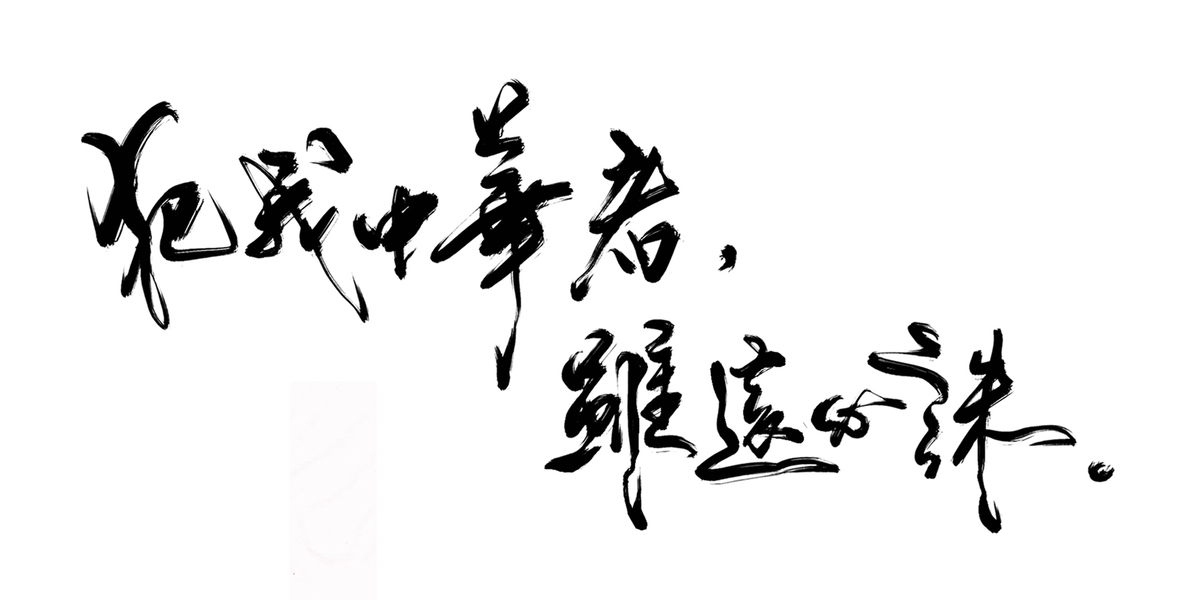 犯我中華者，
雖遠必誅。